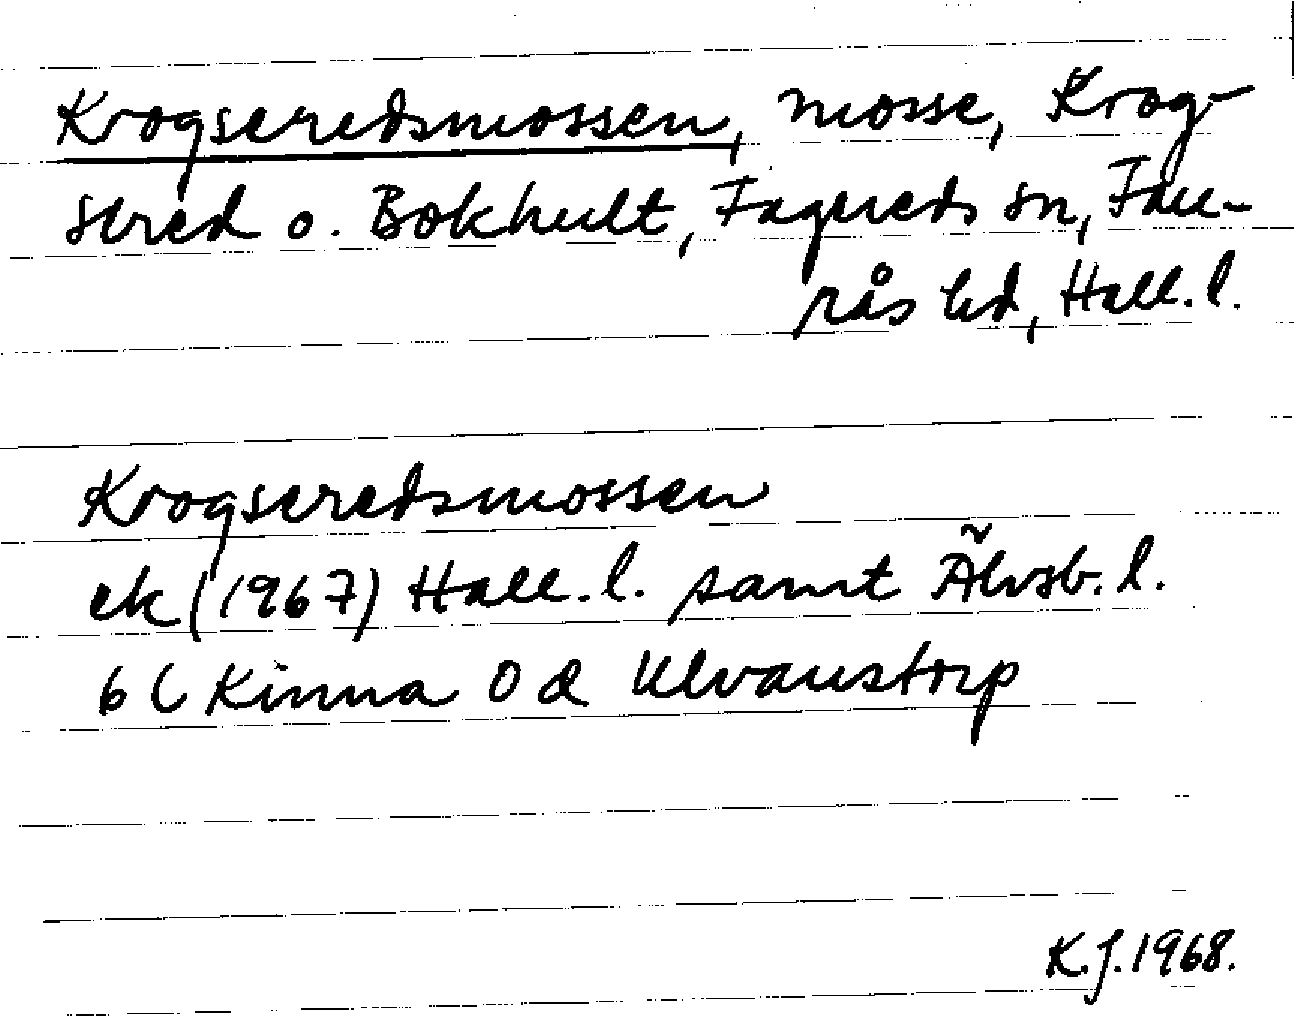 Krogseredsmossen, mosse, Krog-
sered o. Bokhult, Fagereds sn, Fau-
rås hd, Hall. l.
Krogseredsmossen
ek (1967) Hall. l. samt Älvsb. l.
6 C Kinna 0 d Ulvanstorp
K.J. 1968.